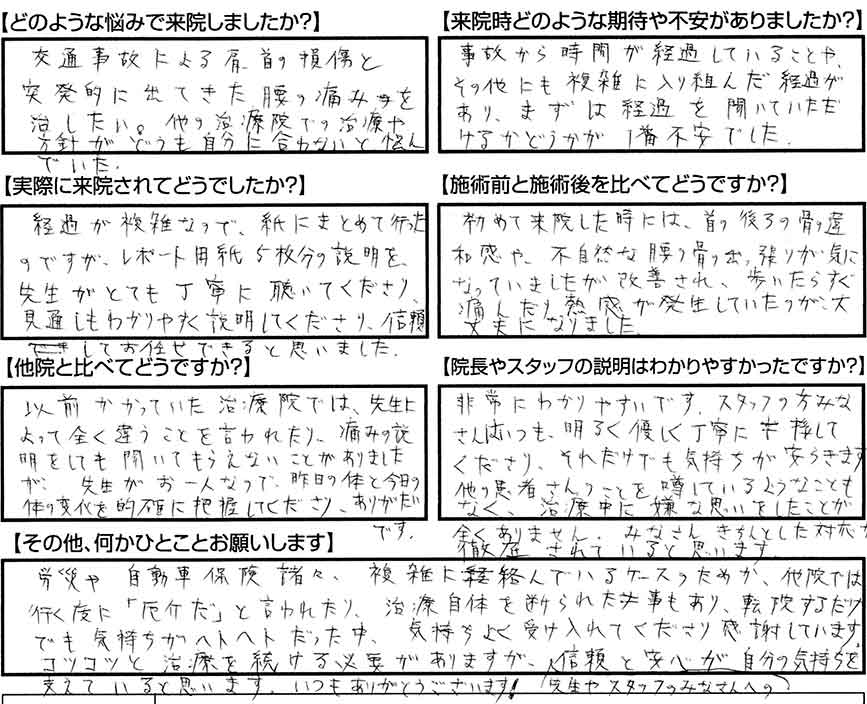 【どのような悩みで来院しましたか?】
交通事故による肩、首の損傷と
突発的に出てきた腰の痛みを
治したい。他の治療院での治療や
方針がどうも自分に合わないと悩ん
でいた.
【来院時どのような期待や不安がありましたか?】
事故から時間が経過していることや、
その他にも複雑に入り組んだ経過が
あり、まずは経過を聞いていただ
けるかどうかが1番不安でした.
【実際に来院されてどうでしたか?】
経過が複雑なので、紙にまとめて行った
のですが、レポート用紙5枚分の説明を、
先生がとても丁寧に聴いてくださり、
見通しもわかりやすく説明してくださり、信頼
してお任せできると思いました.
【施術前と施術後を比べてどうですか?】
初めて来院した時には、首の後ろの骨の違
和感や、不自然な腰の骨の出っ張りが気に
なっていましたが改善され、歩いたらすぐ
痛んだり熱感が発生していたのが、大
丈夫になりました.
【他院と比べてどうですか?】
以前かかっていた治療院では、先生に
よって全く違うことを言われたり、痛みの説
明をしても聞いてもらえないことがありました
が、先生がお一人なので、昨日の体と今日の
体の変化を的確に把握してくださり、ありがたい
です.
【院長やスタッフの説明はわかりやすかったですか?】
非常にわかりやすいです.スタッフの方みな
さんはいつも、明るく優しく丁寧に応接して
くださり、それだけでも気持ちが安らぎます
他の患者さんのことを噂しているようなことも
なく、治療中に嫌な思いをしたことが
全くありません.みなさんきちんとした対応が
徹底されていると思います.
【その他、何かひとことお願いします】
労災や自動車保険諸々、複雑に絡んでいるケースのためか、他院では
行く度に「厄介だ」と言われたり、治療自体を断られた事もあり、転院するだけ
でも気持ちがヘトヘトだった中、気持ちよく受け入れてくださり感謝しています
コツコツと治療を続ける必要がありますが、信頼と安心が自分の気持ちを
支えていると思います.いつもありがとうございます!(先生やスタッフのみなさんへの)